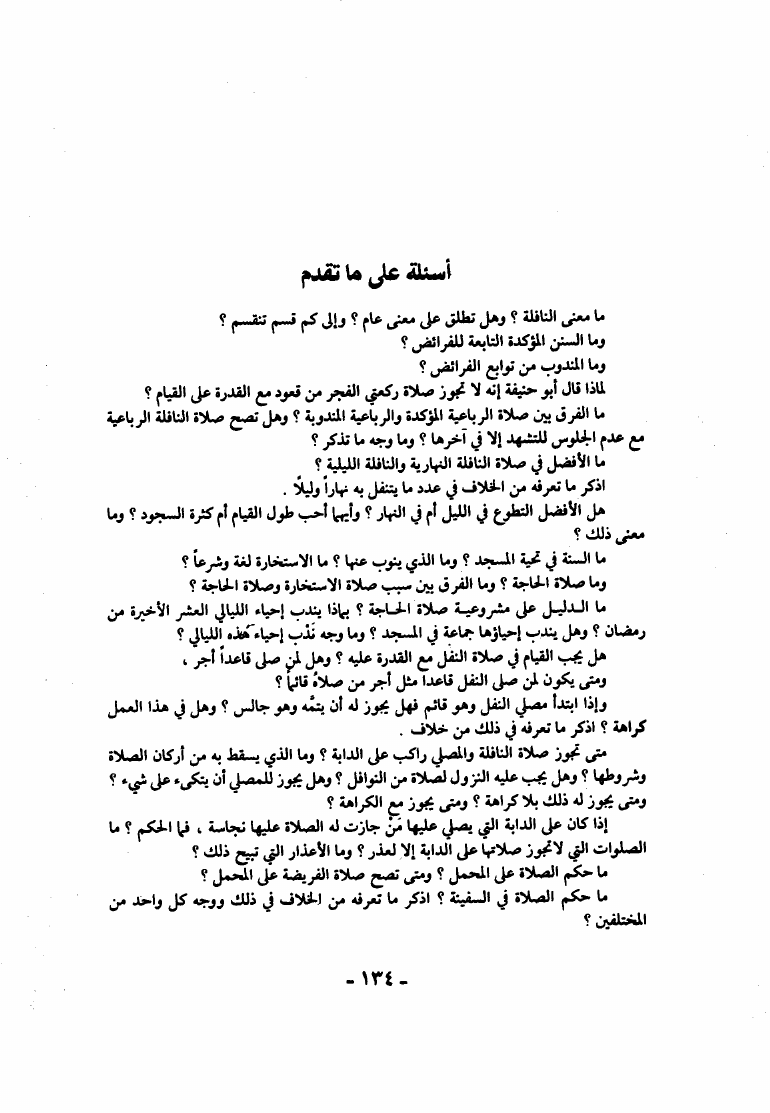 أسئلة على ما تقدم
ما معنى النافلة ؟ وهل تطلق على معنى عام ؟ وإلى كم قسم تنقسم ؟
وما السنن المؤكدة التابعة للفرائض ؟
وما المندوب من توابع الفرائض ؟
لماذا قال أبو حنيفة إنه لا تجوز صلاة ركعتي الفجر من قعود مع القدرة على القيام ؟
ما الفرق بين صلاة الرباعية المؤكدة والرباعية المندوبة ؟ وهل تصح صلاة النافلة الرباعية
مع عدم الجلوس للتشهد إلا في آخرها ؟ وما وجه ما تذكر ؟
ما الأفضل في صلاة النافلة النهارية والنافلة الليلية ؟
اذكر ما تعرفه من الخلاف في عدد ما يتنفل به نهاراً وليلًا .
هل الأفضل التطوع في الليل أم في النهار ؟ وأيهما أحب طول القيام أم كثرة السجود ؟ وما
معنى ذلك ؟
ما السنة في تحية المسجد ؟ وما الذي ينوب عنها ؟ ما الاستخارة لغة وشرعاً ؟
وما صلاة الحاجة ؟ وما الفرق بين سبب صلاة الاستخارة وصلاة الحاجة ؟
ما الدليل على مشروعية صلاة الحاجة ؟ بماذا يندب إحياء الليالي العشر الأخيرة من
رمضان ؟ وهل يندب إحياؤها جماعة في المسجد ؟ وما وجه نَدْب إحياء هذه الليالي ؟
هل يجب القيام في صلاة النفل مع القدرة عليه ؟ وهل لمن صلى قاعداً أجر ،
ومتى يكون لمن صلى النفل قاعدا مثل أجر من صلاهُ قائماً ؟
وإذا ابتدأ مصلي النفل وهو قائم فهل يجوز له أن يتمَّه وهو جالس ؟ وهل في هذا العمل
كراهة ؟ اذكر ما تعرفه في ذلك من خلاف .
متى تجوز صلاة النافلة والمصلي راكب على الدابة ؟ وما الذي يسقط به من أركان الصلاة
وشروطها ؟ وهل يجب عليه النزول لصلاة من النوافل ؟ وهل يجوز للمصلي أن يتكىء على شيء ؟
ومتى يجوز له ذلك بلا كراهة ؟ ومتى يجوز مع الكراهة ؟
إذا كان على الدابة التي يصلي عليها مَنْ جازت له الصلاة عليها نجاسة ، فما الحكم ؟ ما
الصلوات التي لاتجوز صلاتها على الدابة إلا لعذر ؟ وما الأعذار التي تبيح ذلك ؟
ما حكم الصلاة على المحمل ؟ ومتى تصح صلاة الفريضة على المحمل ؟
ما حكم الصلاة في السفينة ؟ اذكر ما تعرفه من الخلاف في ذلك ووجه كل واحد من
المختلفين ؟
- ١٣٤ -